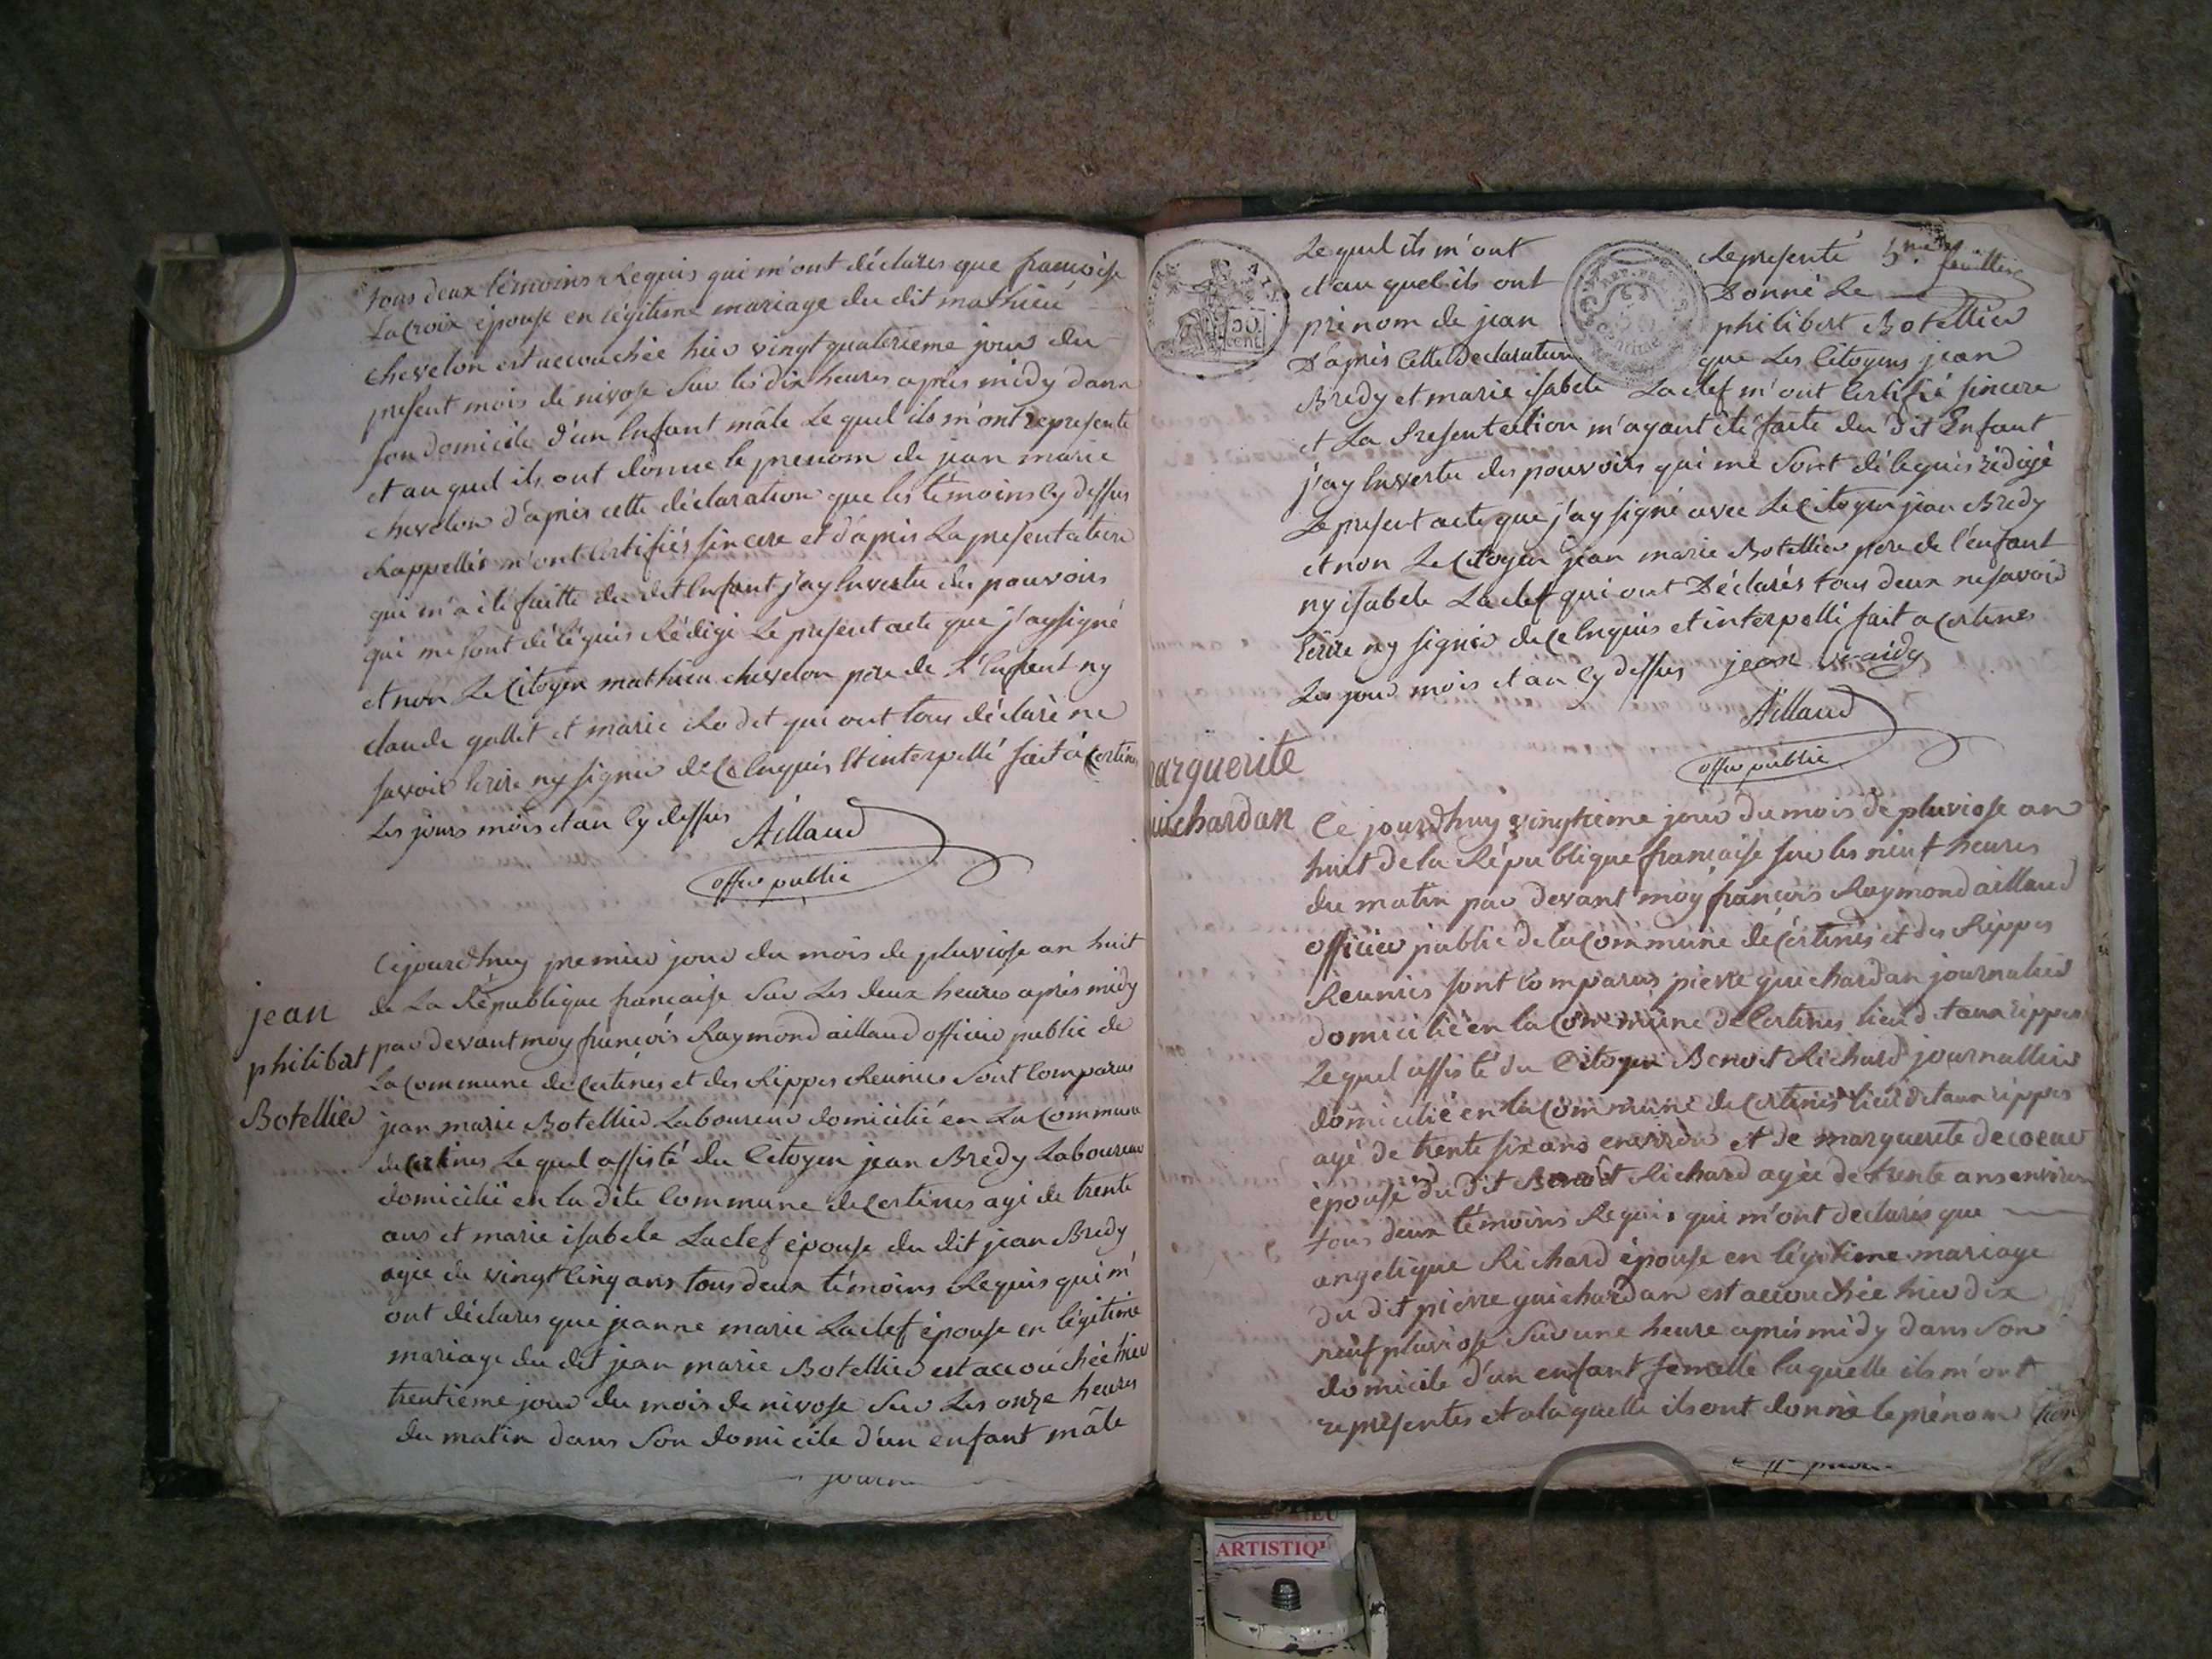 tous deux témoins Requis qui m'ont déclarés que francoise
Lacroix épouse en légitime mariage du dit mathieu
chevelon est accouchée hier vingt quatrieme jour du
present mois de nivose sur les dix heures après midy dans
son domicile d'un Enfant mâle Le quel ils m'ont represente
et au quel ils ont donné le prenom de jean marie
chevelon d'après cette déclaration que les témoins cy dessus
Rappellés m'ont Certifiés sincere et d'après La presentation
qui m'a été faitte du dit Enfant j'ay Envertu des pouvoirs
qui me sont délégués Rédigé Le present acte que j'ay signé
et non Le Citoyen mathieu chevelon père de L'Enfant ny
claude gallet et marie Rodet qui ont tous déclaré ne
savoir Ecrire ny signer de Ce Enquis Et interpellé fait à Certines
Les jours mois et an Cy dessus Aillaud
offer public
jean
philibert
Botellier
Cejourdhuy premier jour du mois de pluviose an huit
de La République française sur Les deux heures après midy
par devant moy françois Raymond aillaud officier public de
La Commune de Certines et des Rippes Reunies Sont Comparus
jean marie Botellier Laboureur domicilié en La Commune
de Certines Le quel assisté du Citoyen jean Bredy Laboureur
domicilié en la dite Commune de Certines agé de trente
ans et marie isabele Laclef épouse du dit jean Bredy
agée de vingt Cinq ans tous deux témoins Requis qui m'
ont déclarés que jeanne marie Laclef épouse en légitime
mariage du dit jean marie Botellier est accouchée hier
trentieme jour du mois de nivose sur Les onze heures
du matin dans Son domicile d'un enfant mâle
Le quel ils m'ont Representé 5.me feuillet
et au quel ils ont Donné Le
prénom de jean philibert Botellier
D'après Cette Déclaration que Les Citoyens jean
Bredy et marie isabele Laclef m'ont Certifié sincere
et La Presentation m'ayant été faite du dit Enfant
j'ay Envertu des pouvoirs qui me Sont délégués rédigé
Le present acte que j'ay signé avec Le Citoyen jean Bredy
et non Le Citoyen jean marie Botellier père de l'enfant
ny isabele Laclef qui ont Déclarés tous deux ne savoir
Ecrire ny signer de Ce Enquis et interpellé fait a Certines
Les jour mois et an Cy dessus jean
Aillaud
offer public
marguerite
guichardan
50
cent
Ce jourdhuy vingtieme jour du mois de pluviose an
huit de la République française sur les neuf heures
du matin par devant moy françois Raymond aillaud
officier public de la Commune de Certines et des Rippes
Reunies sont Comparus pierre guichardan journalier
domicilié en la Commune de Certines lieu dit aux rippes
Le quel assisté du Citoyen Benoit Richard journallier
domicilié en la Commune de Certines lieu dit aux rippes
agé de trente six ans environ et de marguerite decoeur
épouse du dit Benoit Richard agée de trente ans environ
tous deux témoins Requis qui m'ont déclarés que
angelique Richard épouse en légitime mariage
du dit pierre guichardan est accouchée hier dix
neuf pluviose sur une heure après midy dans son
domicile d'un enfant femelle laquelle ils m'ont
représentés et a laquelle ils ont donnés le prénom
ARTISTIQ